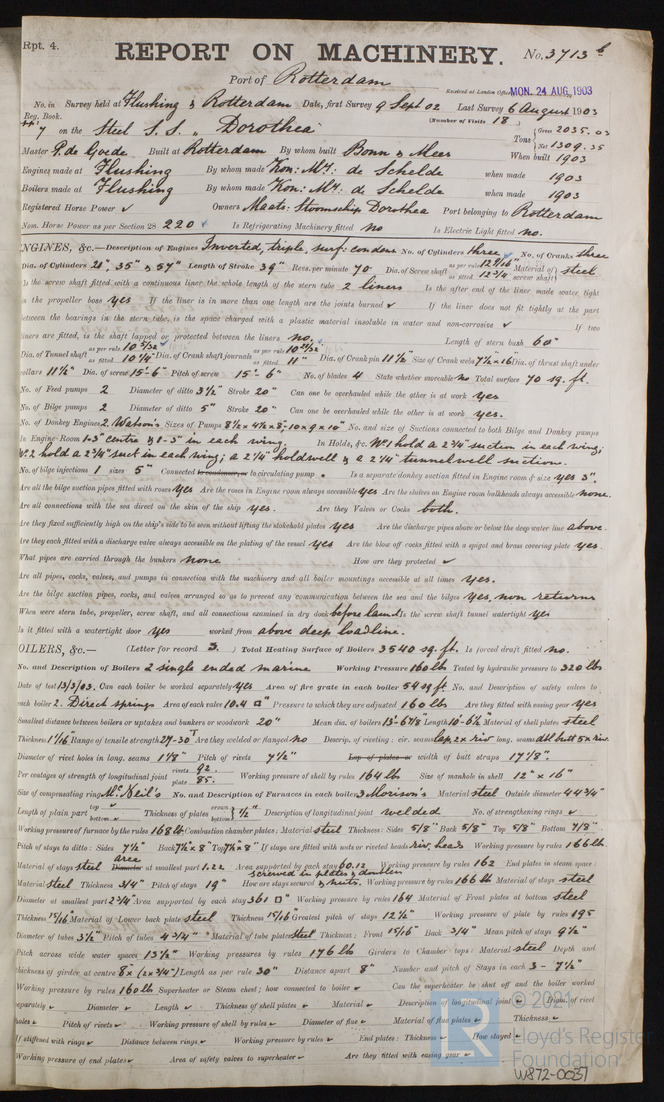 Rpt. 4.
REPORT ON MACHINERY. No. 3713 b
Port of Rotterdam
Received at London Office MON. 24 AUG. 1903
No. in Survey held at Flushing & Rotterdam Date, first Survey 9 Sept 02 Last Survey 6 August 1903
Reg. Book. (Number of Visits 18)
7 on the Steel S.S. "Dorothea" Tons Gross 2035.03 Net 1309.35
Master P. de Goede Built at Rotterdam By whom built Bonn & Mees When built 1903
Engines made at Flushing By whom made Kon: My: de Schelde when made 1903
Boilers made at Flushing By whom made Kon: My: de Schelde when made 1903
Registered Horse Power ✓ Owners Maats: Stoomschip Dorothea Port belonging to Rotterdam
Nom. Horse Power as per Section 28 220 Is Refrigerating Machinery fitted no Is Electric Light fitted no.
NGINES, &c.—Description of Engines Inverted, triple, surf: condens No. of Cylinders three No. of Cranks three
Dia. of Cylinders 21", 35" & 57" Length of Stroke 39" Revs. per minute 70 Dia. of Screw shaft as per rule 12 7/16" as fitted 12 3/4" Material of screw shaft steel
Is the screw shaft fitted with a continuous liner the whole length of the stern tube 2 liners Is the after end of the liner made water tight
in the propeller boss yes If the liner is in more than one length are the joints burned ✓ If the liner does not fit tightly at the part
between the bearings in the stern tube, is the space charged with a plastic material insoluble in water and non-corrosive ✓ If two
liners are fitted, is the shaft lapped or protected between the liners no. Length of stern bush 60"
Dia. of Tunnel shaft as per rule 10 5/32 as fitted 10 1/4" Dia. of Crank shaft journals as per rule 10 21/32 as fitted 11" Dia. of Crank pin 11 1/2" Size of Crank webs 7 1/2 x 16 Dia. of thrust shaft under
collars 11 1/2" Dia. of screw 15'-6" Pitch of screw 15'-6" No. of blades 4 State whether moveable no Total surface 70 sq. ft.
No. of Feed pumps 2 Diameter of ditto 3 1/2" Stroke 20" Can one be overhauled while the other is at work yes
No. of Bilge pumps 2 Diameter of ditto 5" Stroke 20" Can one be overhauled while the other is at work yes.
No. of Donkey Engines 2. Watson's Sizes of Pumps 8 1/2 x 4 1/2 x 8 - 10 x 9 x 10" No. and size of Suctions connected to both Bilge and Donkey pumps
In Engine Room 1-3" centre & 1-3" in each wing. In Holds, &c. No 1 hold a 2 3/4" suction in each wing;
No 2 hold a 2 3/4" suct in each wing; a 2 1/4" holdwell & a 2 1/4" tunnelwell suction.
No. of bilge injections 1 sizes 5" Connected to condenser, or to circulating pump . Is a separate donkey suction fitted in Engine room & size yes 3".
Are all the bilge suction pipes fitted with roses yes Are the roses in Engine room always accessible yes Are the sluices on Engine room bulkheads always accessible none.
Are all connections with the sea direct on the skin of the ship yes. Are they Valves or Cocks both.
Are they fixed sufficiently high on the ship's side to be seen without lifting the stokehold plates yes Are the discharge pipes above or below the deep water line above.
Are they each fitted with a discharge valve always accessible on the plating of the vessel yes Are the blow off cocks fitted with a spigot and brass covering plate yes.
What pipes are carried through the bunkers none How are they protected ✓
Are all pipes, cocks, valves, and pumps in connection with the machinery and all boiler mountings accessible at all times yes.
Are the bilge suction pipes, cocks, and valves arranged so as to prevent any communication between the sea and the bilges yes, non returns
When were stern tube, propeller, screw shaft, and all connections examined in dry dock before launch Is the screw shaft tunnel watertight yes
Is it fitted with a watertight door yes worked from above deep loadline.
OILERS, &c.— (Letter for record 3.) Total Heating Surface of Boilers 3540 sq. ft. Is forced draft fitted no.
No. and Description of Boilers 2 single ended marine Working Pressure 160 lbs Tested by hydraulic pressure to 320 lbs
Date of test 13/3/03. Can each boiler be worked separately yes Area of fire grate in each boiler 54 sq ft No. and Description of safety valves to
each boiler 2. Direct springs Area of each valve 10.4 □" Pressure to which they are adjusted 160 lbs Are they fitted with easing gear yes
Smallest distance between boilers or uptakes and bunkers or woodwork 20" Mean dia. of boilers 13'-6 7/8 Length 10-6 1/2 Material of shell plates steel
Thickness 1 1/16 Range of tensile strength 27-30 T Are they welded or flanged no Descrip. of riveting: cir. seams lap, 2x riv long. seams dbl butt 5x riv.
Diameter of rivet holes in long. seams 1 1/8" Pitch of rivets 7 1/2" Lap of plates or width of butt straps 17 1/8".
Per centages of strength of longitudinal joint rivets 92. plate 85. Working pressure of shell by rules 164 lbs Size of manhole in shell 12" x 16"
Size of compensating ring McNeil's No. and Description of Furnaces in each boiler 3 Morison's Material steel Outside diameter 44 3/4"
Length of plain part top ✓ bottom ✓ Thickness of plates crown bottom 1/2" Description of longitudinal joint welded No. of strengthening rings ✓
Working pressure of furnace by the rules 168 lbs Combustion chamber plates: Material steel Thickness: Sides 5/8" Back 5/8" Top 5/8" Bottom 7/8"
Pitch of stays to ditto: Sides 7 1/2" Back 7 1/2 x 8" Top 7 3/4 x 8" If stays are fitted with nuts or riveted heads riv. heads Working pressure by rules 166 lb.
Material of stays steel Diameter area at smallest part 1.22 Area supported by each stay 60.12 Working pressure by rules 162 End plates in steam space:
Material steel Thickness 3/4" Pitch of stays 19" How are stays secured screwed in plates & doublen & nuts. Working pressure by rules 166 lb Material of stays steel
Diameter at smallest part 2 3/4" Area supported by each stay 361 □" Working pressure by rules 164 Material of Front plates at bottom steel
Thickness 15/16" Material of Lower back plate steel Thickness 15/16" Greatest pitch of stays 12 1/2" Working pressure of plate by rules 195
Diameter of tubes 3 1/2" Pitch of tubes 4 3/4" Material of tube plates steel Thickness: Front 15/16" Back 3/4" Mean pitch of stays 9 1/2"
Pitch across wide water spaces 13 1/2" Working pressures by rules 176 lb Girders to Chamber tops: Material steel Depth and
thickness of girder at centre 8" x (2 x 3/4") Length as per rule 30" Distance apart 8" Number and pitch of Stays in each 3 - 7 1/2"
Working pressure by rules 160 lb Superheater or Steam chest; how connected to boiler ✓ Can the superheater be shut off and the boiler worked
separately ✓ Diameter ✓ Length ✓ Thickness of shell plates ✓ Material ✓ Description of longitudinal joint ✓ Diam. of rivet
holes ✓ Pitch of rivets ✓ Working pressure of shell by rules ✓ Diameter of flue ✓ Material of flue plates ✓ Thickness ✓
If stiffened with rings ✓ Distance between rings ✓ Working pressure by rules ✓ End plates: Thickness ✓ How stayed ✓
Working pressure of end plates ✓ Area of safety valves to superheater ✓ Are they fitted with easing gear ✓
© 2021
Lloyd's Register
Foundation
W872-0037